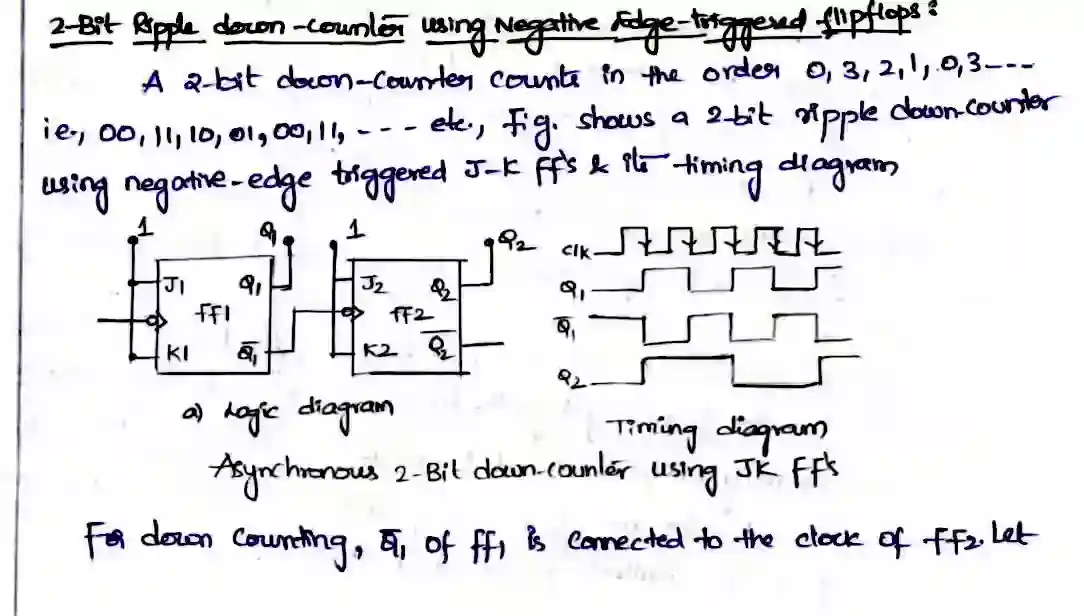 2-Bit Ripple down-counter using Negative Edge-triggered flipflops:
A 2-bit down-counter counts in the order 0, 3, 2, 1, 0, 3 ---
i.e., 00, 11, 10, 01, 00, 11, --- etc., Fig. shows a 2-bit ripple down-counter
using negative-edge triggered J-K ff's & its timing diagram
1 Q1 1 Q2
J1 Q1
FF1
K1 Q̅1
J2 Q2
FF2
K2 Q̅2
clk
Q1
Q̅1
Q2
a) Logic diagram
Timing diagram
Asynchronous 2-Bit down-counter using JK ff's
For down counting, Q̅1 of ff1 is connected to the clock of ff2. Let